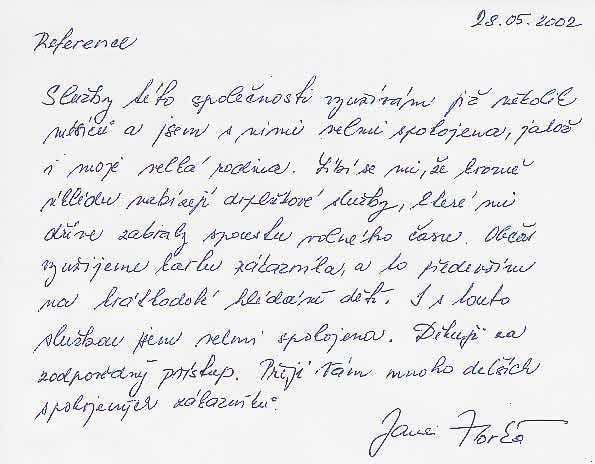 28.05.2002
Reference
Služby této společnosti využívám již několik
měsíců a jsem s nimi velmi spokojena, jakož
i moje velká rodina. Líbí se mi, že kromě
úklidu nabízejí doplňkové služby, které mi
dříve zabraly spoustu volného času. Občas
využijeme kartu zákazníka, a to především
na krátkodobé hlídání dětí. I s touto
službou jsem velmi spokojena. Děkuji za
zodpovědný přístup. Přeji Vám mnoho dalších
spokojených zákazníků.
Jana